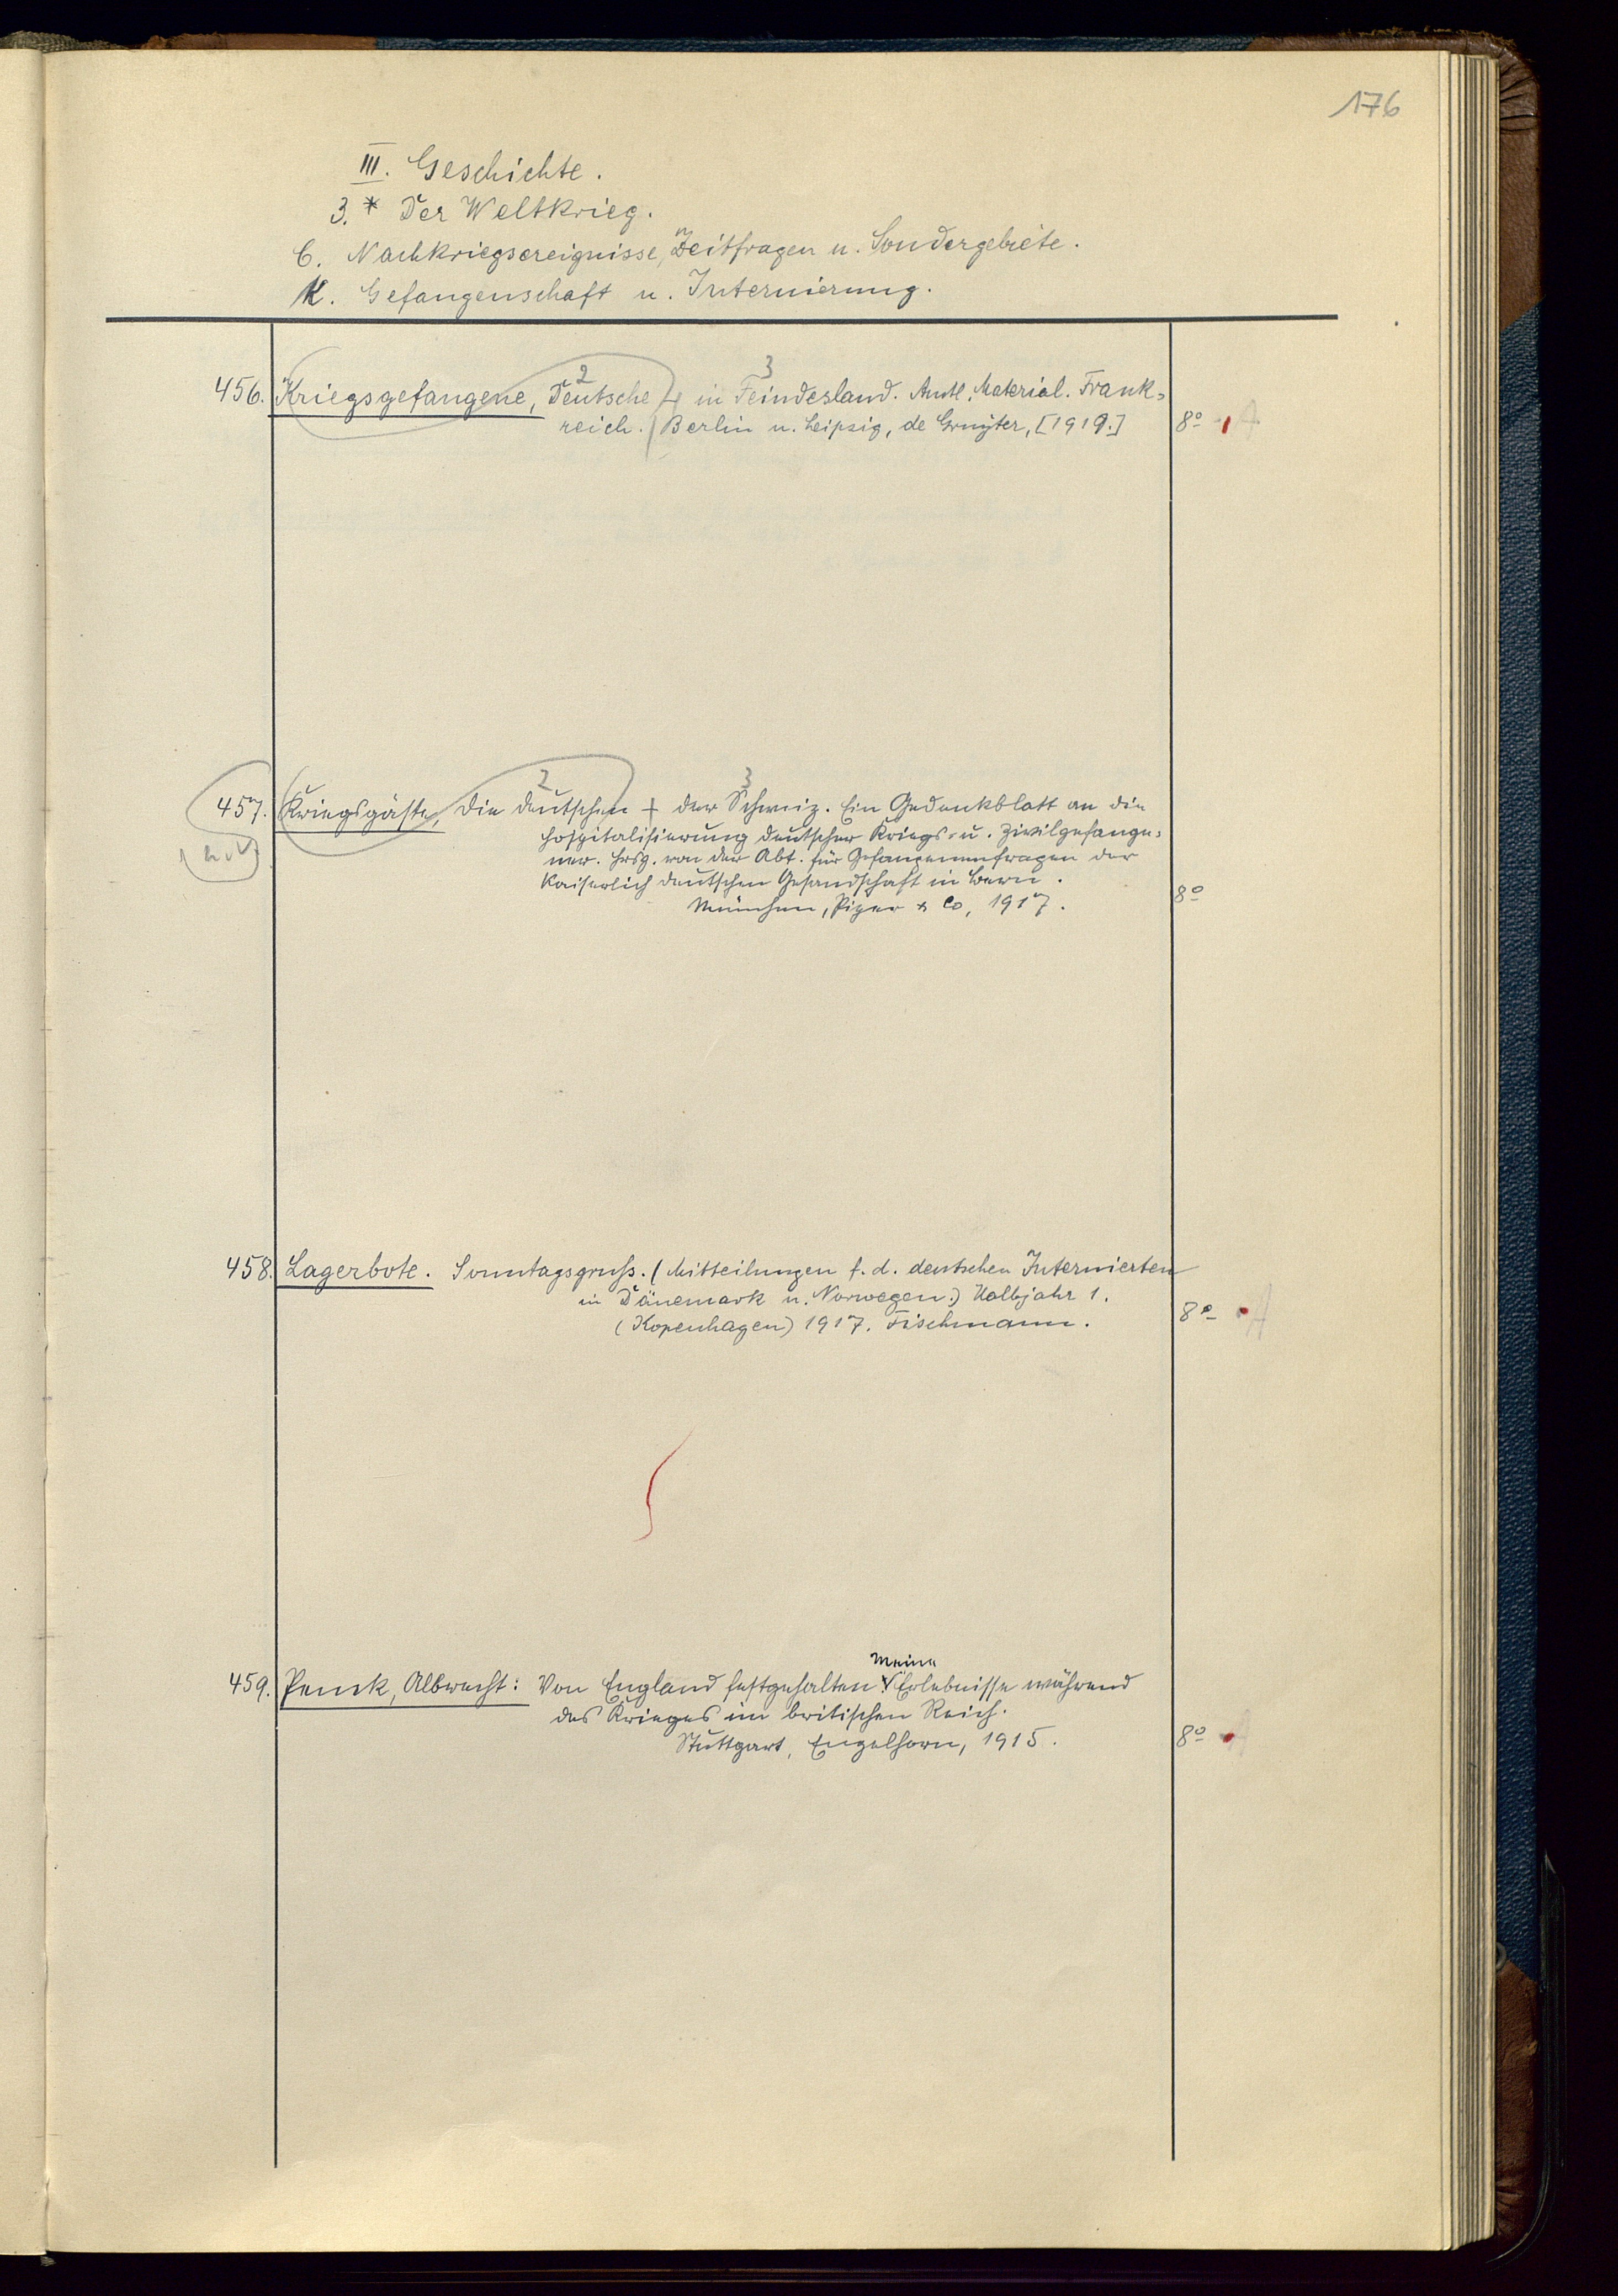 176
III. Geschichte.
3.* Der Weltkrieg.
C. Nachkriegsereignisse, Zeitfragen u. Sondergebiete.
K. Gefangenschaft u. Internierung.
2 3
456. Kriegsgefangene, Deutsche + in Feindesland. Amtl. Material. Frank-
reich. Berlin u. Leipzig, de Gruyter, [1919.] 8° A
2 3
457. Kriegsgäste, Die deutschen + der Schweiz. Ein Gedenkblatt an die
Hospitalisierung deutscher Kriegs- u. Zivilgefange-
ner. Hrsg. von der Abt. für Gefangenenfragen der
Kaiserlich deutschen Gesandschaft in Bern.
München, Piper & Co, 1917. 8°
458. Lagerbote. Sonntagsgruß. (Mitteilungen f. d. deutschen Internierten
in Dänemark u. Norwegen.) Halbjahr 1.
(Kopenhagen) 1917. Fischmann. 8° A
Meine
459. Penck, Albrecht: Von England festgehalten. Erlebnisse während
des Krieges im britischen Reich.
Stuttgart, Engelhorn, 1915. 8° A